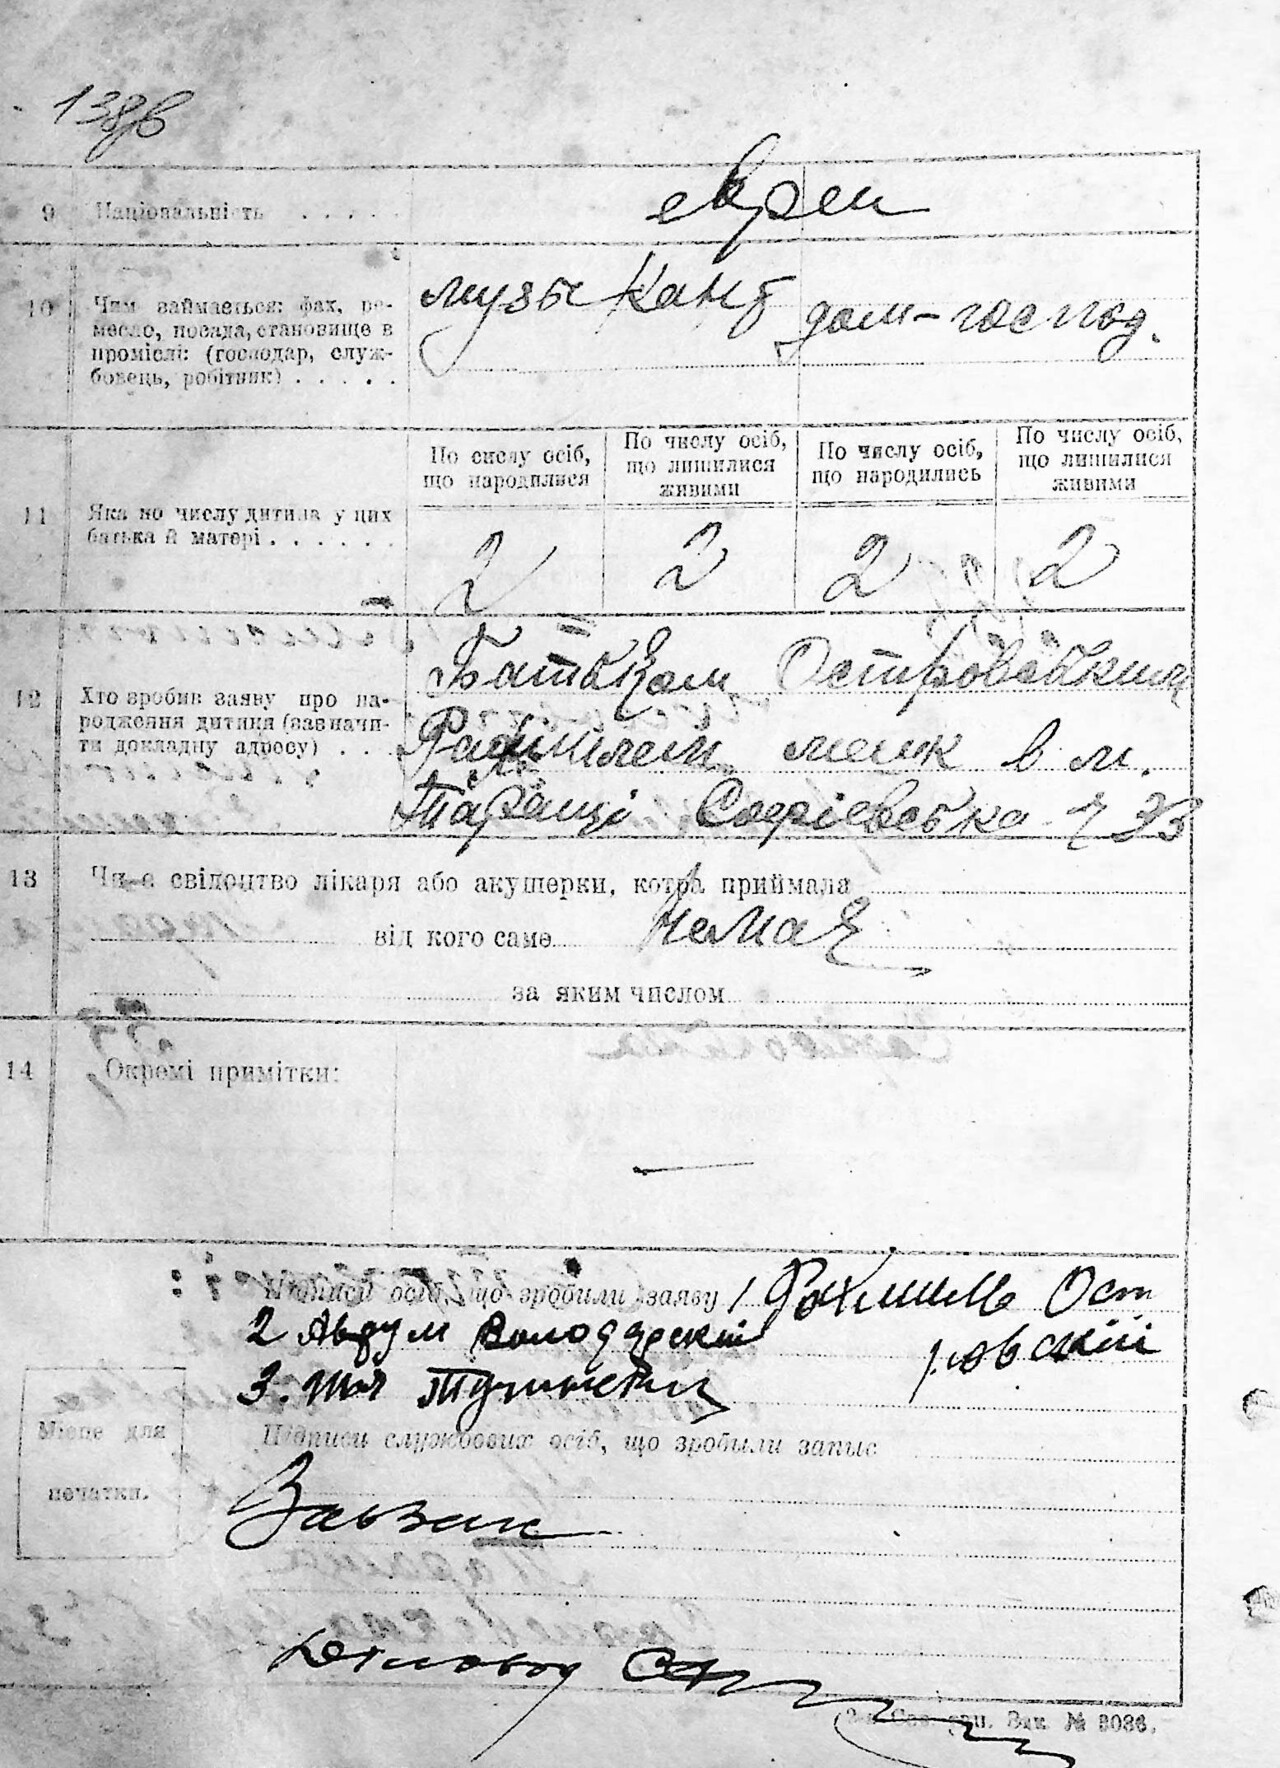 138
9 Національність . . . . . евреи
10 Чим займається: фах, ре-
месло, посада, становище в
проміслі: (господар, служ-
бовець, робітник) . . . . .
музыкант дом-господ.
11 Яка по числу дитина у цих
батька й матері . . . . . .
По числу осіб,
що народилися
По числу осіб,
що лишилися
живими
По числу осіб,
що народились
По числу осіб,
що лишилися
живими
2 2 2 2
12 Хто зробив заяву про на-
родження дитини (зазначи-
ти докладну адресу) . . .
Батьком
мешк в м.
Таращі Софіевська ч 33
13 Чи є свідоцтво лікаря або акушерки, котра приймала
від кого саме немає
за яким числом
14 Окремі примітки:
—
Підписи осіб, що зробили заяву 1 Рахмиль Ост
ровский
2 Аврум Володарский
3.
Місце для
печатки.
Підписи службових осіб, що зробили запис
Завзаг
Діловод
Зак. № 3036.